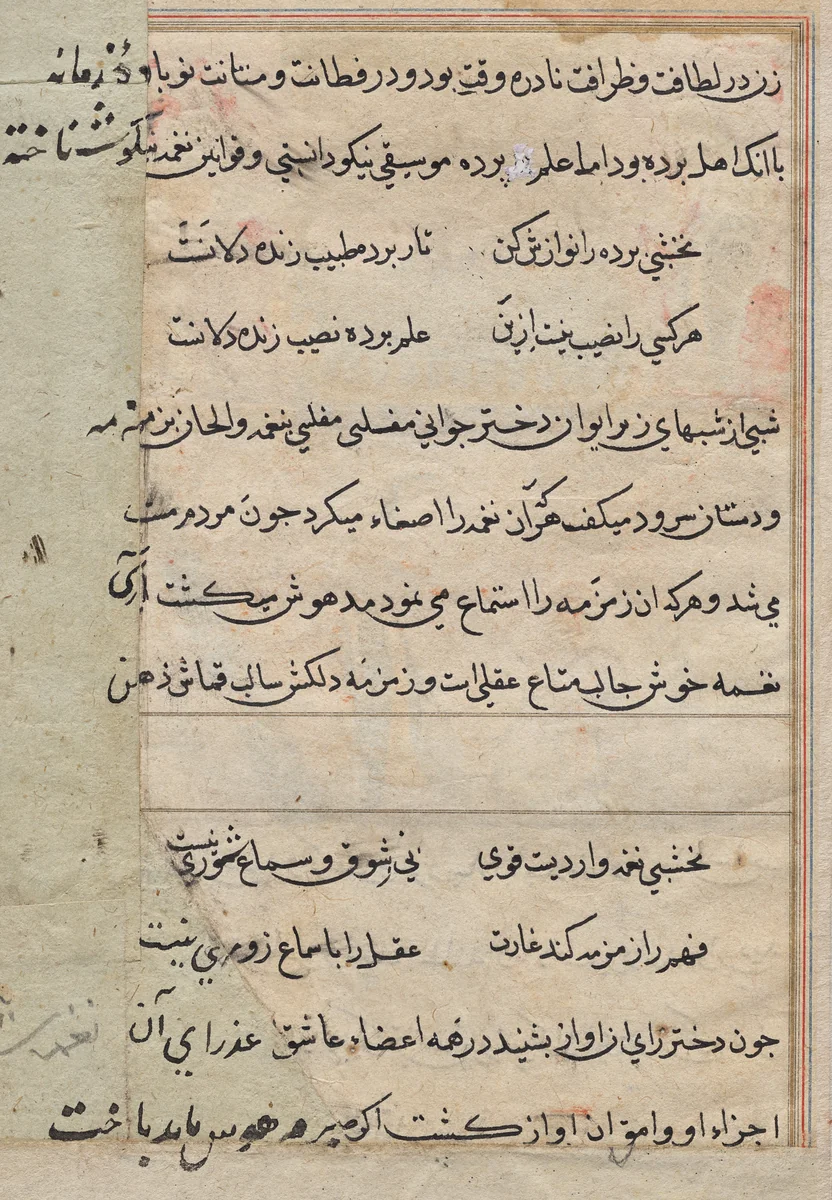 زن در لطافت و ظرافت نادره وقت بود و در فطانت و متانت نوباوهٔ زمانه
با انک اهل برده بود اما علم برده موسیقی نیکو دانستی و قوانین نغمه نیکو شناخته
نخشبی برده را نوازش کن تار برد مطبیب زنده دلانست
هر کسی را نصیب نیست ازین علم برده نصیب زنده دلانست
شبی از شبهای زیر ایوان دختر جوانی مفلسی بنغمه و الحان
و دستان سرود میکفت هر که آن نغمه را اصغاء میکرد جون مردم مست
می شد و هر که ان زمزمه را استماع می نمود مدهوش میکشت آری
نغمه خوش جالب متاع عقلی است و زمزمه دلکش سالب قماش ذهن
نخشبی نغمه واردیست قوی نی شوق و سماع شوری نیست
فهم را زمزمه کند غارت عقل را با سماع زوری نیست
جون دختر رای ان اواز بشنید در همه اعضاء عاشق عذرای آن
اجزاء او وامق ان اواز کشت اکر صبر و هوس باید باخت